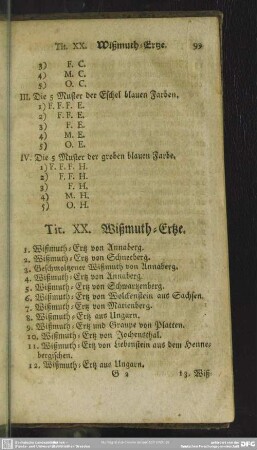 Tit. XX. Wißmuth-Ertze. 99
3) F. C.
4) M. C.
5) O. C.
III. Die 5 Muster der Eschel blauen Farben.
1) F. F. F. E.
2) F. F. E.
3) F. E.
4) M. E.
5) O. E.
IV. Die 5 Muster der groben blauen Farbe.
1) F. F. F. H.
2) F. F. H.
3) F. H.
4) M. H.
5) O. H.
Tit. XX. Wißmuth-Ertze.
1. Wißmuth-Ertz von Annaberg.
2. Wißmuth-Ertz von Schneeberg.
3. Geschmoltzener Wißmuth von Annaberg.
4. Wißmuth-Ertz von Annaberg.
5. Wißmuth-Ertz von Schwartzenberg.
6. Wißmuth-Ertz von Wolckenstein aus Sachsen.
7. Wißmuth-Ertz von Marienberg.
8. Wißmuth-Ertz aus Ungarn.
9. Wißmuth-Ertz und Graupe von Platten.
10. Wißmuth-Ertz von Jochensthal.
11. Wißmuth-Ertz von Liebenstein aus dem Henne-
bergischen.
12. Wißmuth-Ertz aus Ungarn.
G 2 13. Wiß-